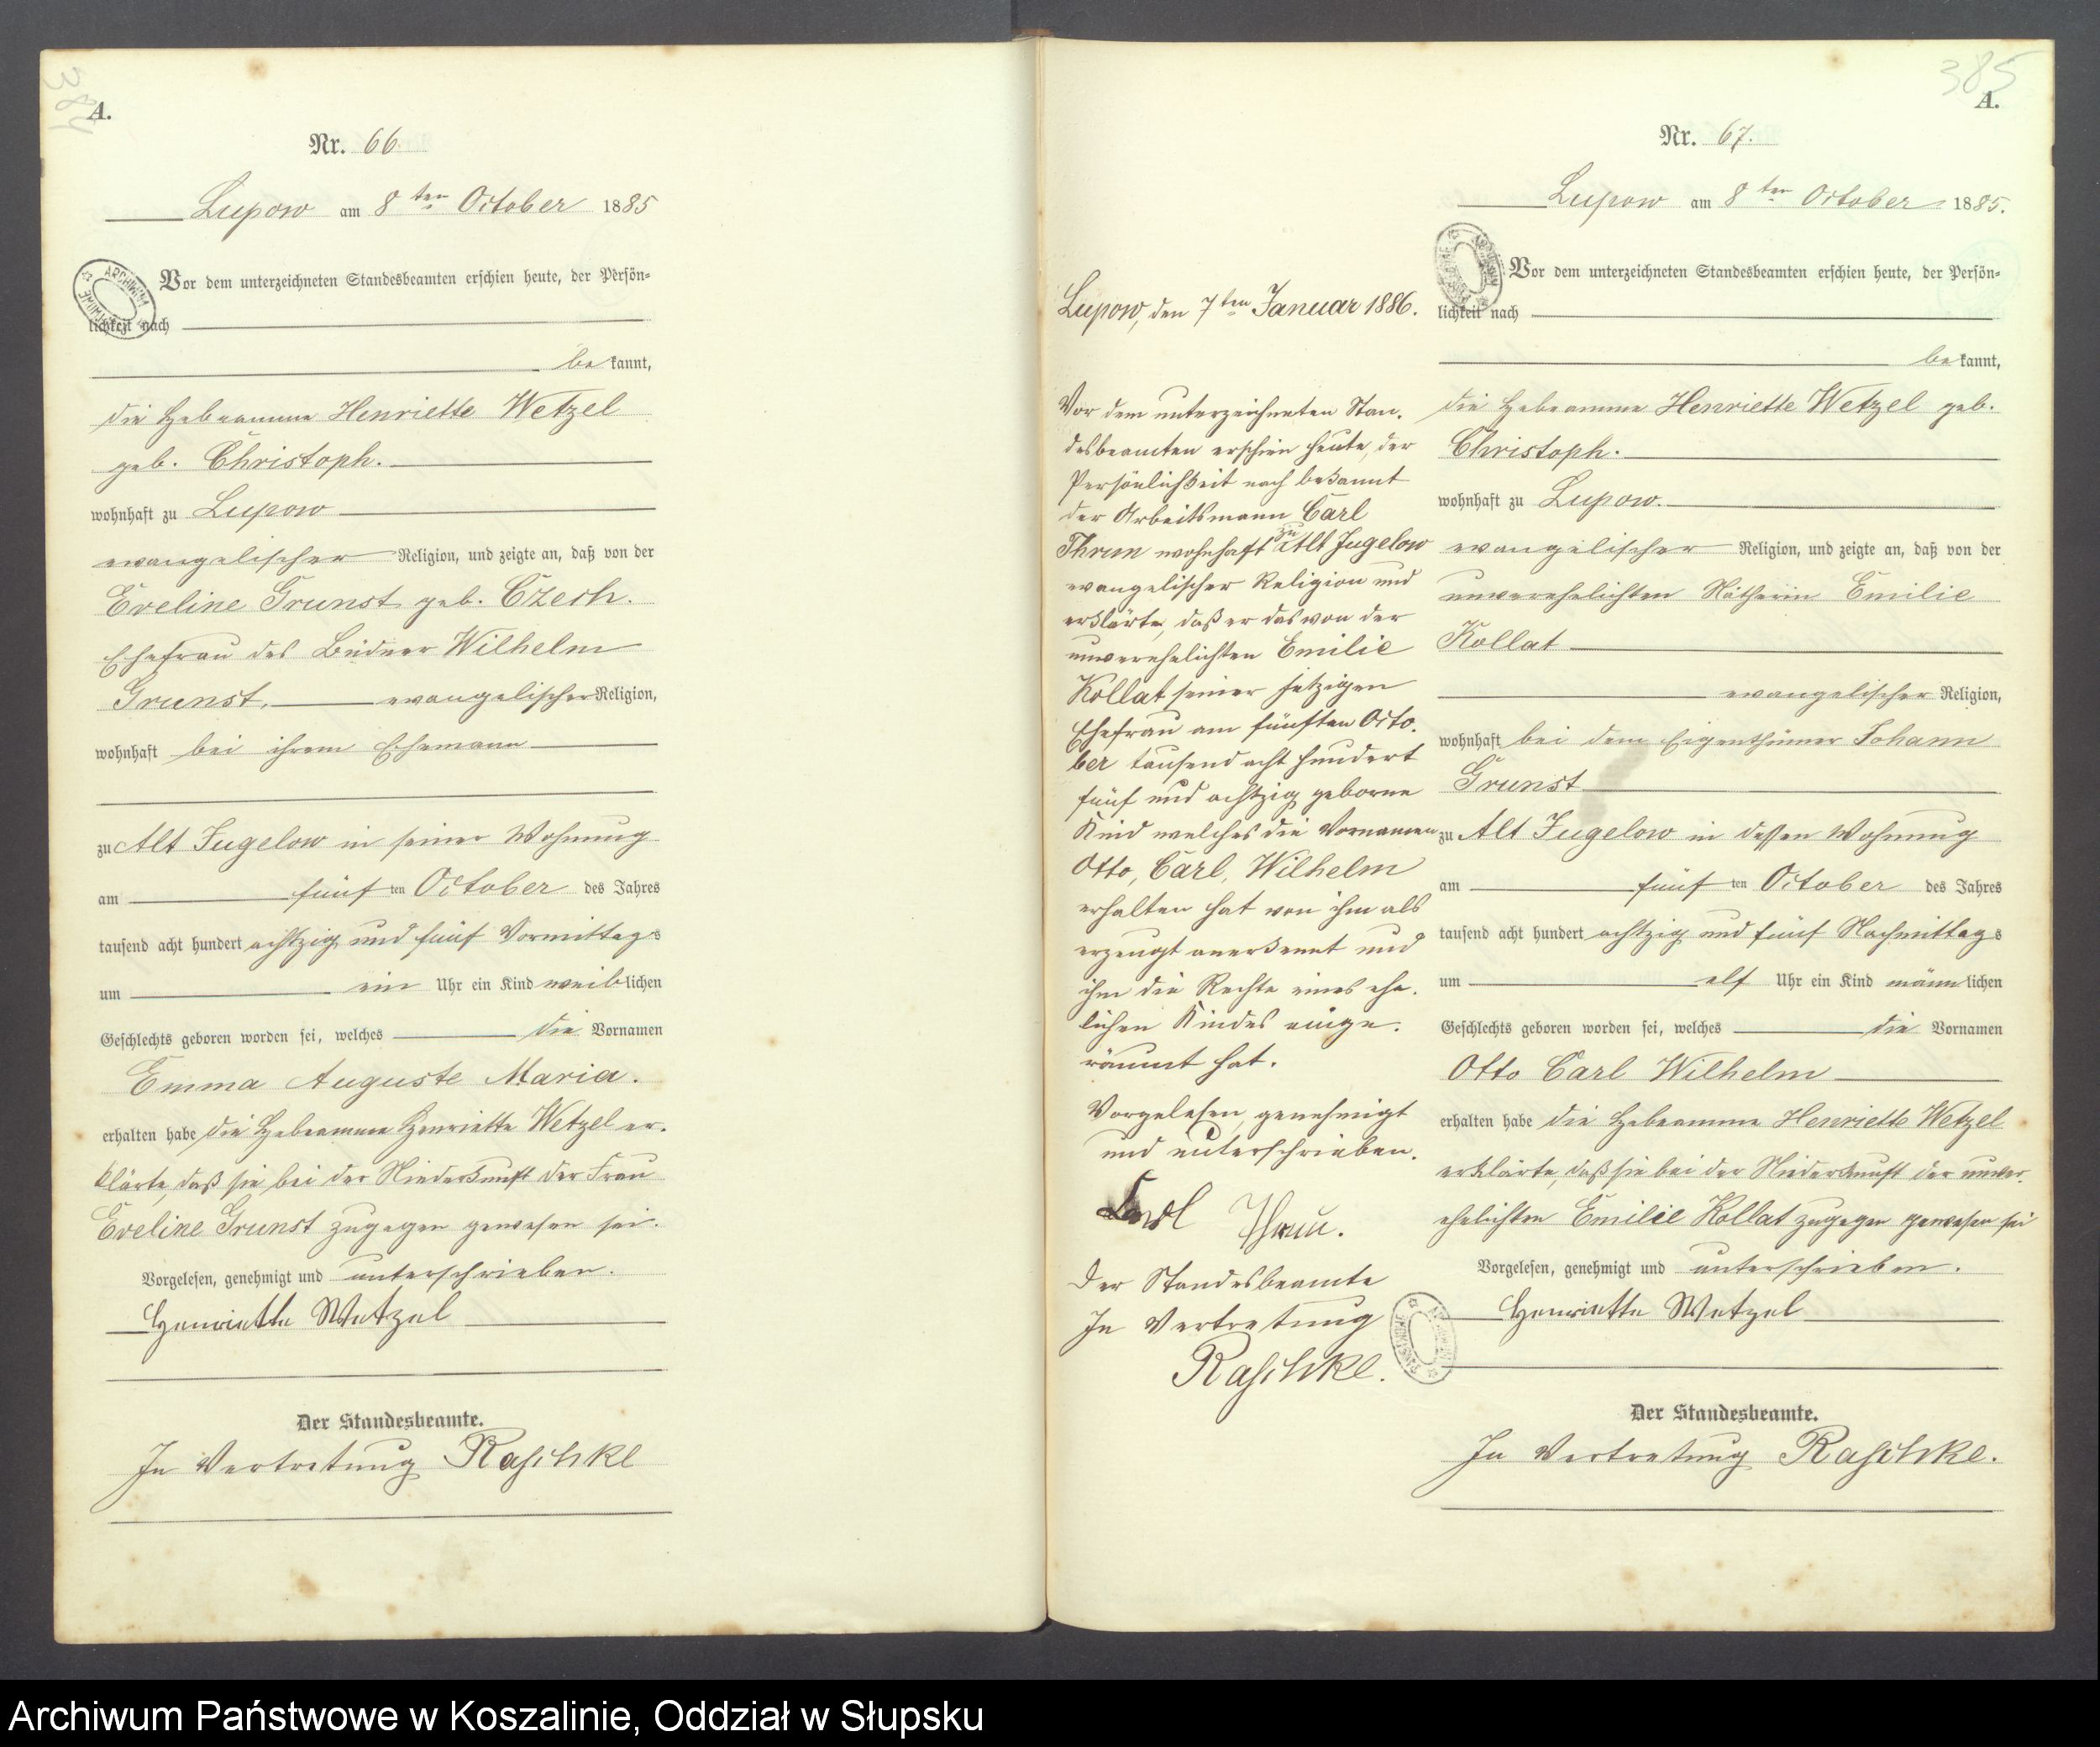 384
A.
Nr. 66.
Lupow am 8ten October 1885
Vor dem unterzeichneten Standesbeamten erschien heute, der Persön-
lichkeit nach
bekannt,
die Hebeamme Henriette Wetzel
geb. Christoph.
wohnhaft zu Lupow
evangelischer Religion, und zeigte an, daß von der
Eveline Grunst geb. Czech.
Ehefrau des Büdner Wilhelm
Grunst, evangelischer Religion,
wohnhaft bei ihrem Ehemann
zu Alt Jugelow in seiner Wohnung
am fünften October des Jahres
tausend acht hundert achtzig und fünf Vormittags
um ein Uhr ein Kind weiblichen
Geschlechts geboren worden sei, welches die Vornamen
Emma Auguste Maria.
erhalten habe die Hebeamme Henriette Wetzel er-
klärte, daß sie bei der Niederkunft der Frau
Eveline Grunst zugegen gewesen sei.
Vorgelesen, genehmigt und unterschrieben.
Henriette Wetzel
Der Standesbeamte.
In Vertretung Raschke
385
A.
Nr. 67.
Lupow am 8ten October 1885.
Vor dem unterzeichneten Standesbeamten erschien heute, der Persön-
lichkeit nach
bekannt,
die Hebeamme Henriette Wetzel geb.
Christoph.
wohnhaft zu Lupow.
evangelischer Religion, und zeigte an, daß von der
unverehelichten Nätherin Emilie
Kollat
evangelischer Religion,
wohnhaft bei dem Eigenthümer Johann
Grunst
zu Alt Jugelow in dessen Wohnung
am fünften October des Jahres
tausend acht hundert achtzig und fünf Nachmittags
um elf Uhr ein Kind männlichen
Geschlechts geboren worden sei, welches die Vornamen
Otto Carl Wilhelm
erhalten habe die Hebeamme Henriette Wetzel
erklärte, daß sie bei der Niederkunft der unver-
ehelichten Emilie Kollat zugegen gewesen sei
Vorgelesen, genehmigt und unterschrieben.
Henriette Wetzel
Der Standesbeamte.
In Vertretung Raschke.
Lupow, den 7ten Januar 1886.
Vor dem unterzeichneten Stan-
desbeamten erschien heute, der
Persönlichkeit nach bekannt
der Arbeitsmann Carl
Thrun wohnhaft zu Alt Jugelow
evangelischer Religion und
erklärte, daß er das von der
unverehelichten Emilie
Kollat seiner jetzigen
Ehefrau am fünften Octo-
ber tausend acht hundert
fünf und achtzig geborne
Kind welches die Vornamen
Otto, Carl, Wilhelm
erhalten hat von ihm als
erzeugt anerkennt und
ihm die Rechte eines ehe-
lichen Kindes einge-
räumt hat.
Vorgelesen, genehmigt
und unterschrieben.
Carl Thrun.
Der Standesbeamte
In Vertretung
Raschke.
Archiwum Państwowe w Koszalinie, Oddział w Słupsku